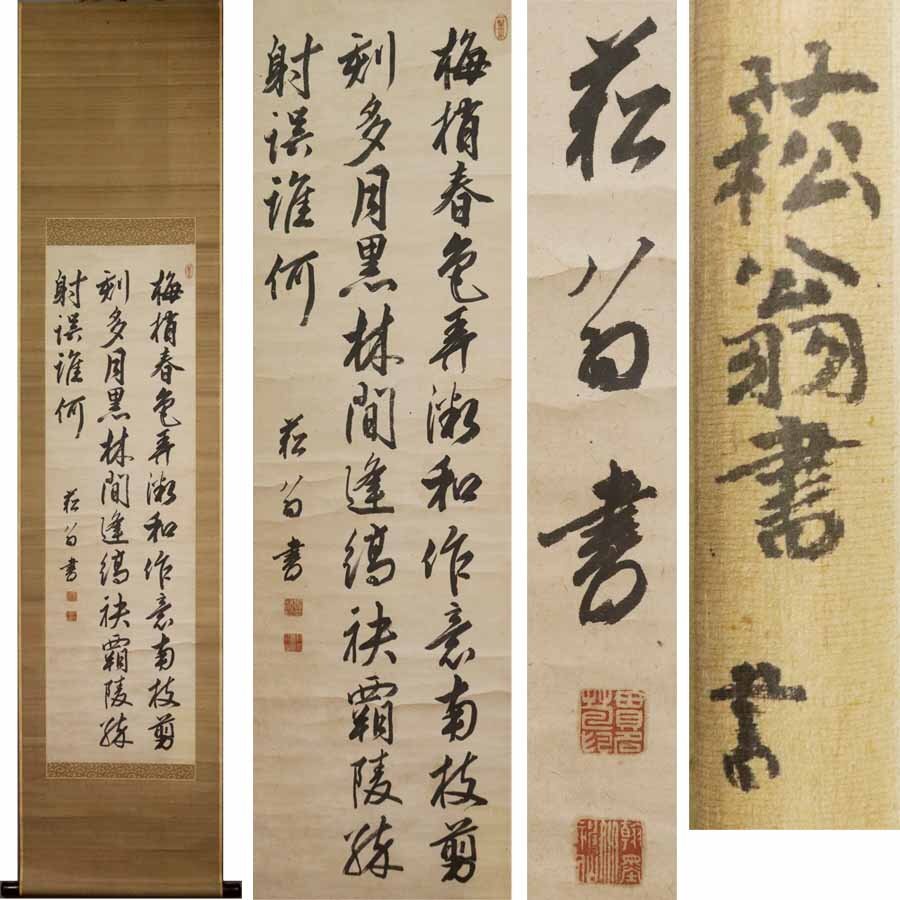 梅梢春色弄微和作意南枝剪
刻多月黒林間逢縞袂霸陵醉
射誤誰何
菘翁書
梅梢春色弄微和作意南枝剪
刻多月黒林間逢縞袂霸陵醉
射誤誰何
菘翁書
菘翁書
貫名苞印
菘翁書
書